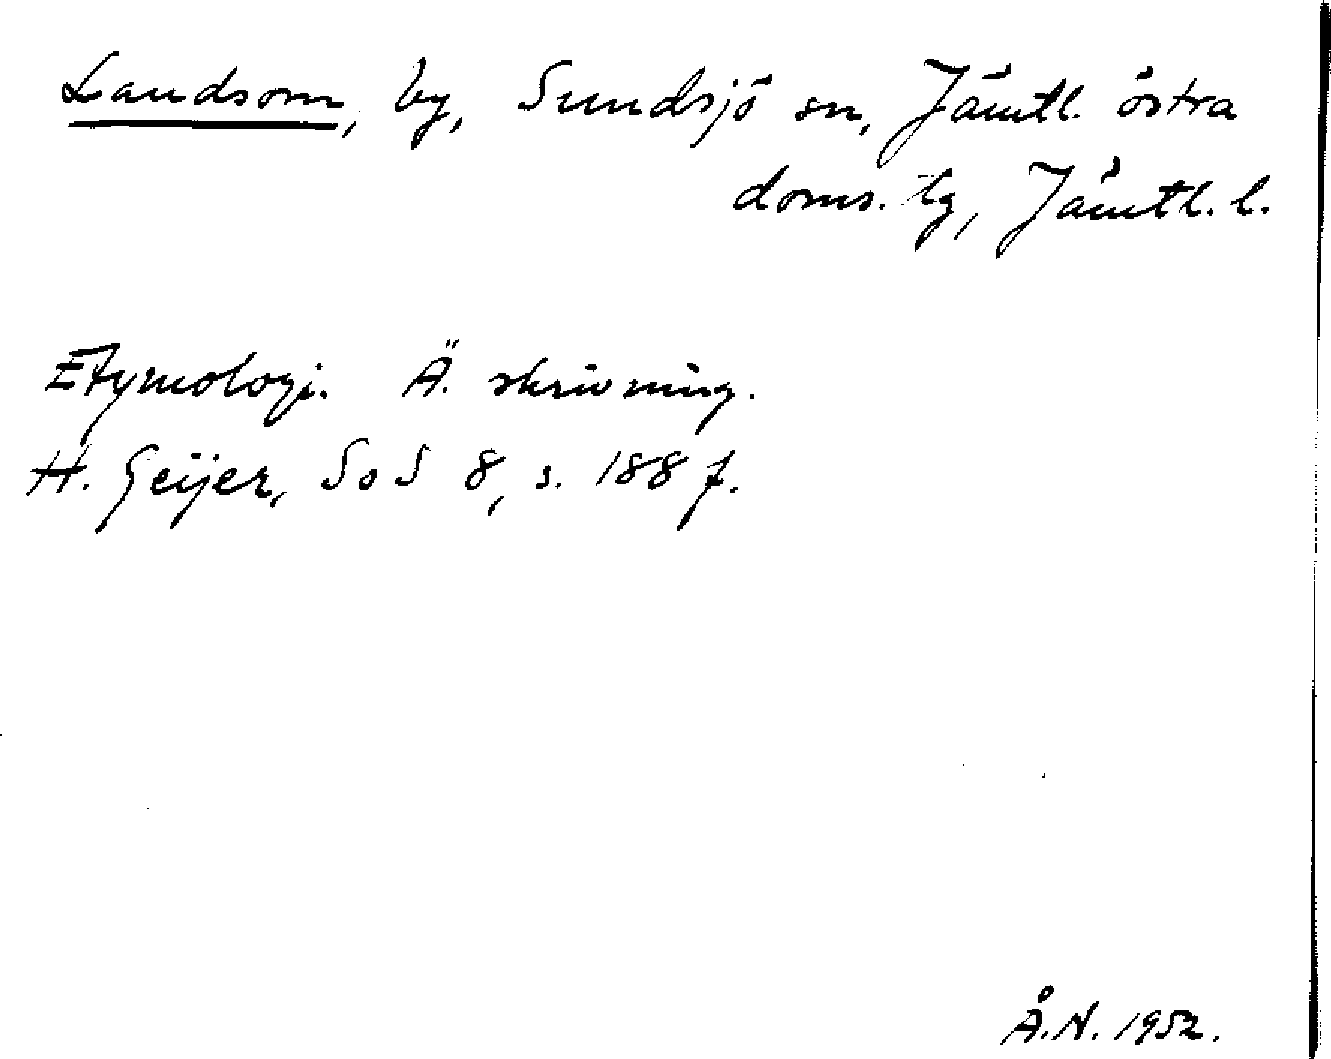 Landsom, by, Sundsjö sn, Jämtl. östra
doms. tg, Jämtl. l.
Etymologi. Ä. skrivning.
H. Geijer, SoS 8, s. 188 f.
Å.N. 1952.